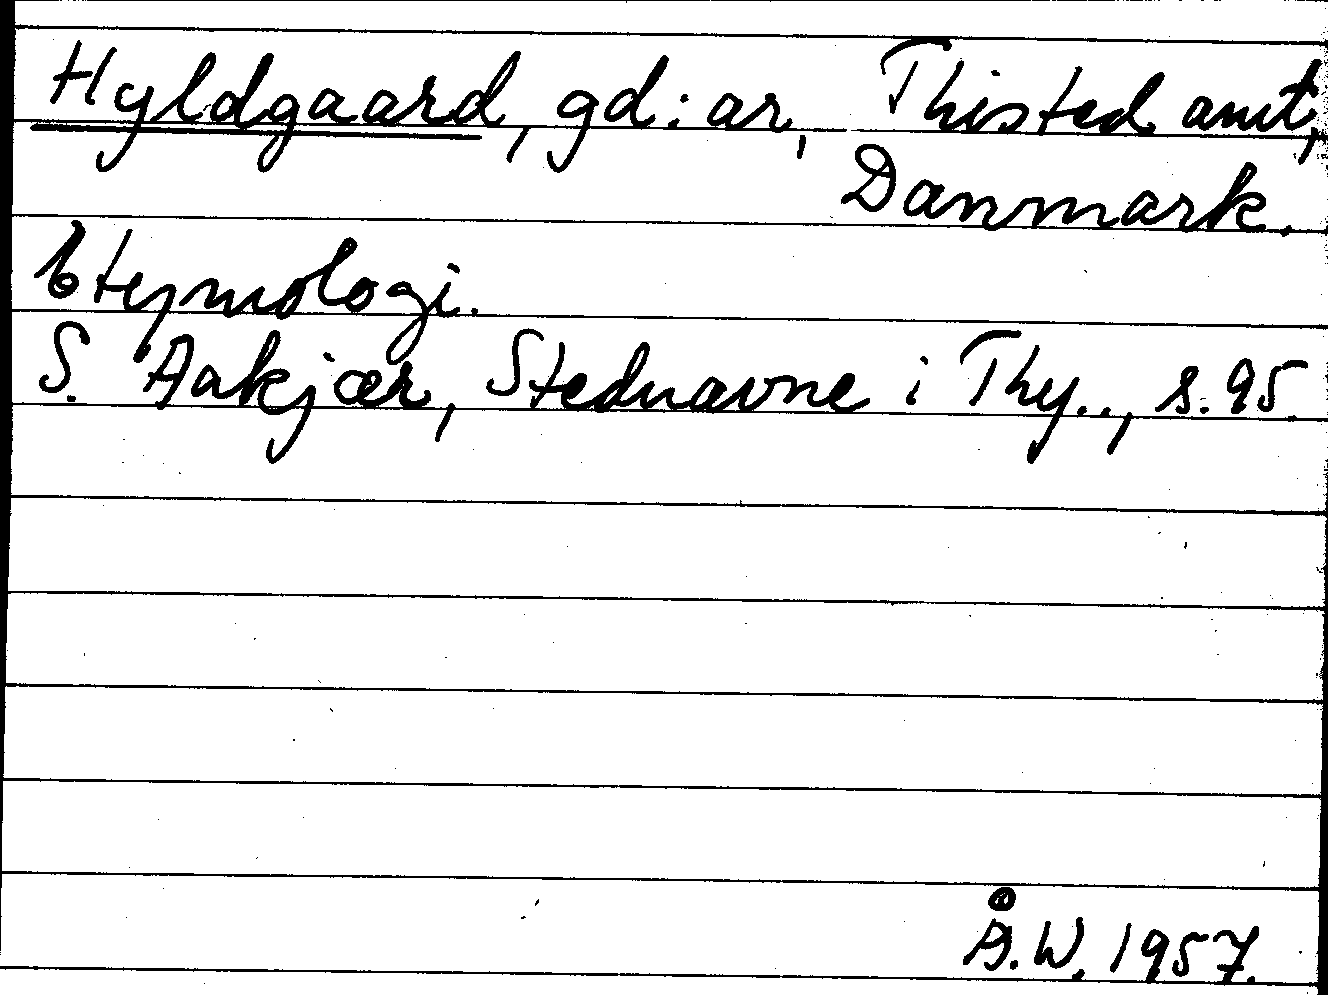 Hyldgaard, gd:ar, Thisted amt,
Danmark.
Etymologi.
S. Aakjær, Stednavne i Thy.., s. 95.
Å.W. 1957.